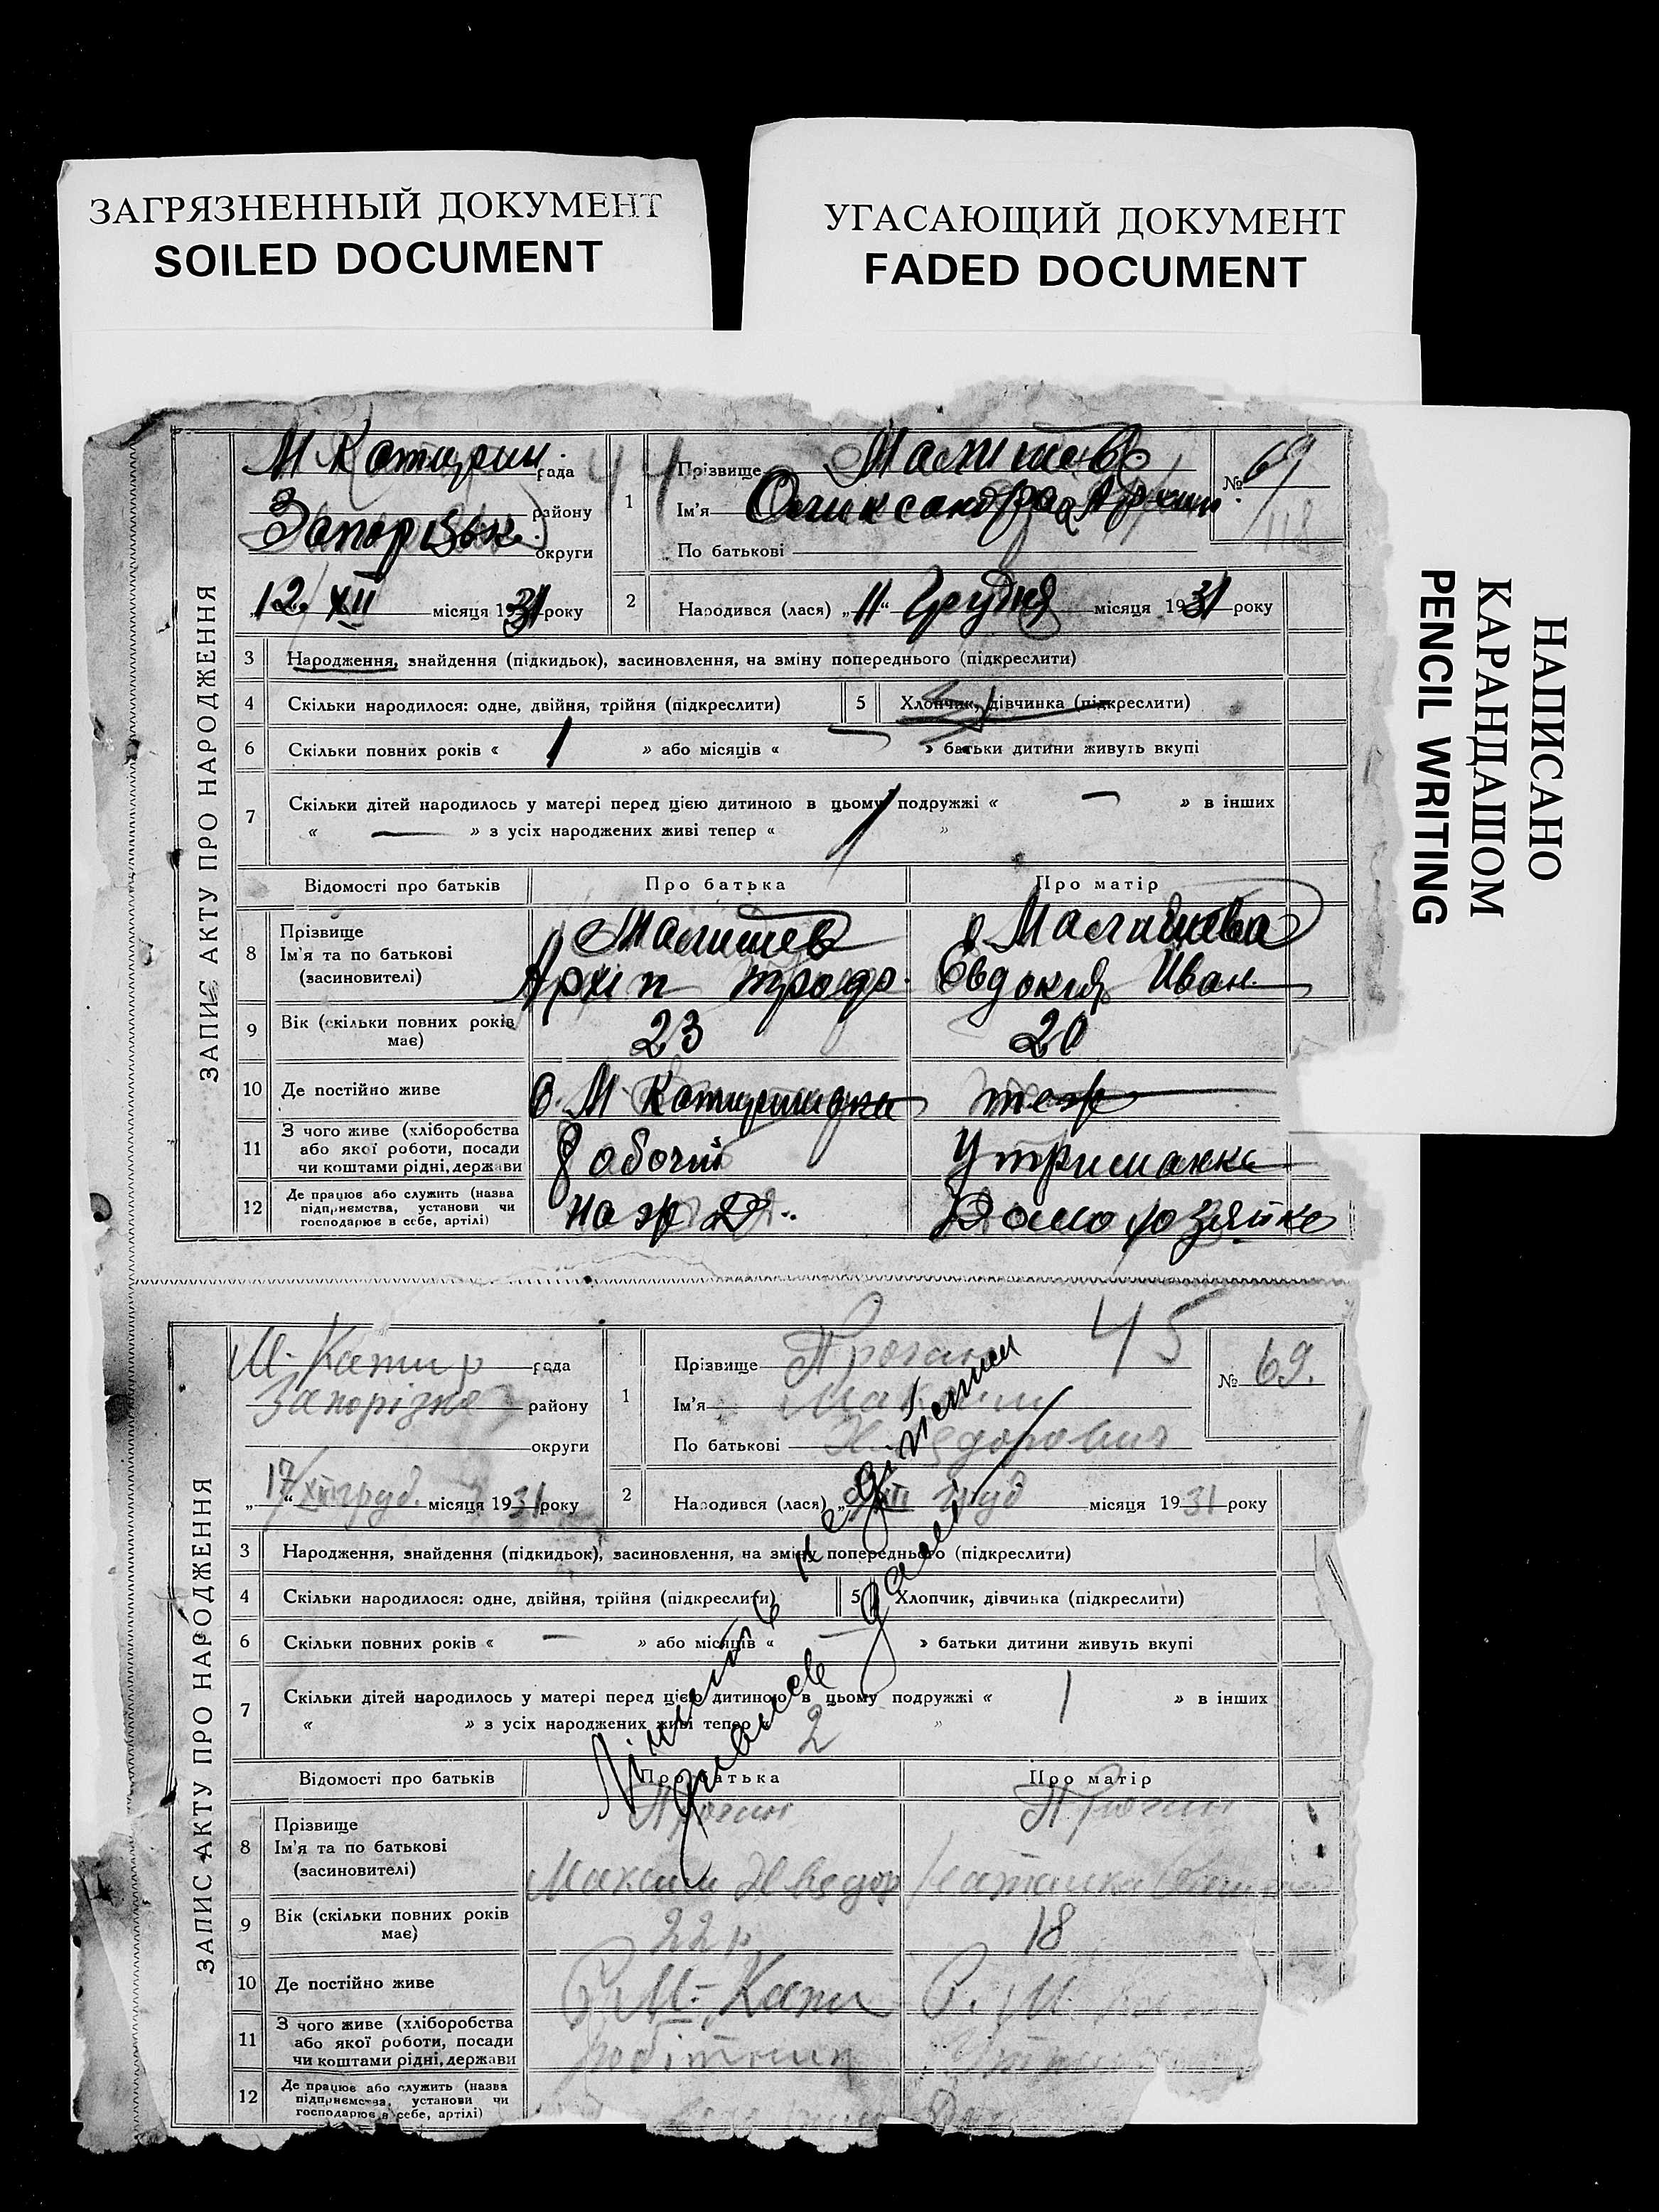 ЗАГРЯЗНЕННЫЙ ДОКУМЕНТ
SOILED DOCUMENT
УГАСАЮЩИЙ ДОКУМЕНТ
FADED DOCUMENT
НАПИСАНО
КАРАНДАШОМ
PENCIL WRITING
ЗАПИС АКТУ ПРО НАРОДЖЕННЯ
М Катерин. рада
району
Запорізьк. округи
"12" XII місяця 1931 року
44
1 Прізвище Малишев
Ім'я Олександра Архип
По батькові
№ 69
118
2 Народився (лася) „11“ Грудня місяця 1931 року
3 Народження, знайдення (підкидьок), засиновлення, на зміну попереднього (підкреслити)
4 Скільки народилося: одне, двійня, трійня (підкреслити) 5 Хлопчик, дівчинка (підкреслити)
6 Скільки повних років « 1 » або місяців « » батьки дитини живуть вкупі
7 Скільки дітей народилось у матері перед цією дитиною в цьому подружжі « — » в інших
« — » з усіх народжених живі тепер « 1 »
Відомості про батьків Про батька Про матір
8 Прізвище
Ім'я та по батькові
(засиновителі)
Малишев Малишева
Архіп Евдокия Иван
9 Вік (скільки повних років має) 23 20
10 Де постійно живе с. М тож
11 З чого живе (хліборобства
або якої роботи, посади
чи коштами рідні, держави
Робочий Утриманка
12 Де працює або служить (назва
підприємства, установи чи
господарює в себе, артілі)
на ж Д. Домохозяйка
ЗАПИС АКТУ ПРО НАРОДЖЕННЯ
М. Катир рада
Запорізьке району
округи
„17“ XII груд. місяця 1931 року
45
1 Прізвище
Ім'я Максим
По батькові
№ 69.
2 Народився (лася) „ XII груд місяця 1931 року
3 Народження, знайдення (підкидьок), засиновлення, на зміну попереднього (підкреслити)
4 Скільки народилося: одне, двійня, трійня (підкреслити) 5 Хлопчик, дівчинка (підкреслити)
6 Скільки повних років « — » або місяців « — » батьки дитини живуть вкупі
7 Скільки дітей народилось у матері перед цією дитиною в цьому подружжі « 1 » в інших
« » з усіх народжених живі тепер « 2 »
Відомості про батьків Про батька Про матір
8 Прізвище
Ім'я та по батькові
(засиновителі)
Максим Наталка
9 Вік (скільки повних років має) 22 р 18
10 Де постійно живе С. М. Кати С. М.
11 З чого живе (хліборобства
або якої роботи, посади
чи коштами рідні, держави
робітник
12 Де працює або служить (назва
підприємства, установи чи
господарює в себе, артілі)